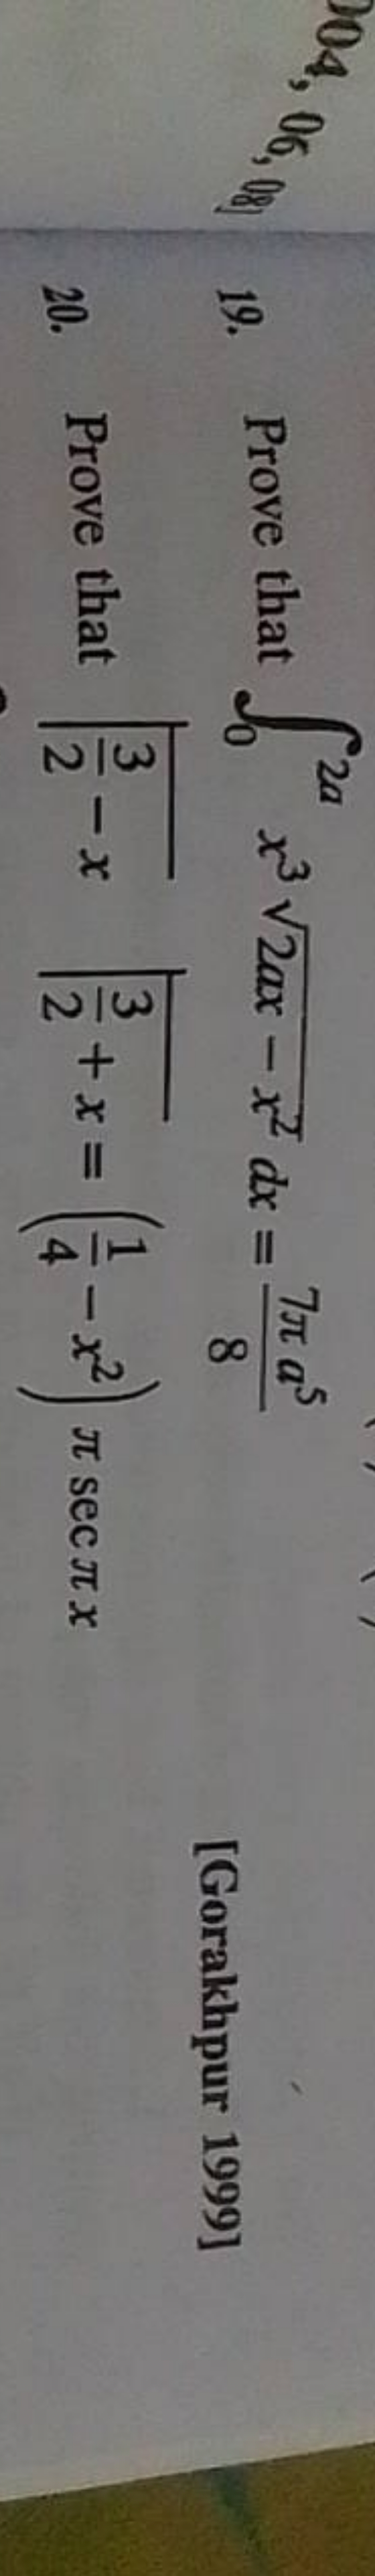 004, 06, 08]
19. Prove that ∫₀²ᵃ x³ √(2ax − x²) dx = 7π a⁵ / 8
[Gorakhpur 1999]
20. Prove that Γ(3/2 − x) Γ(3/2 + x) = (1/4 − x²) π sec π x